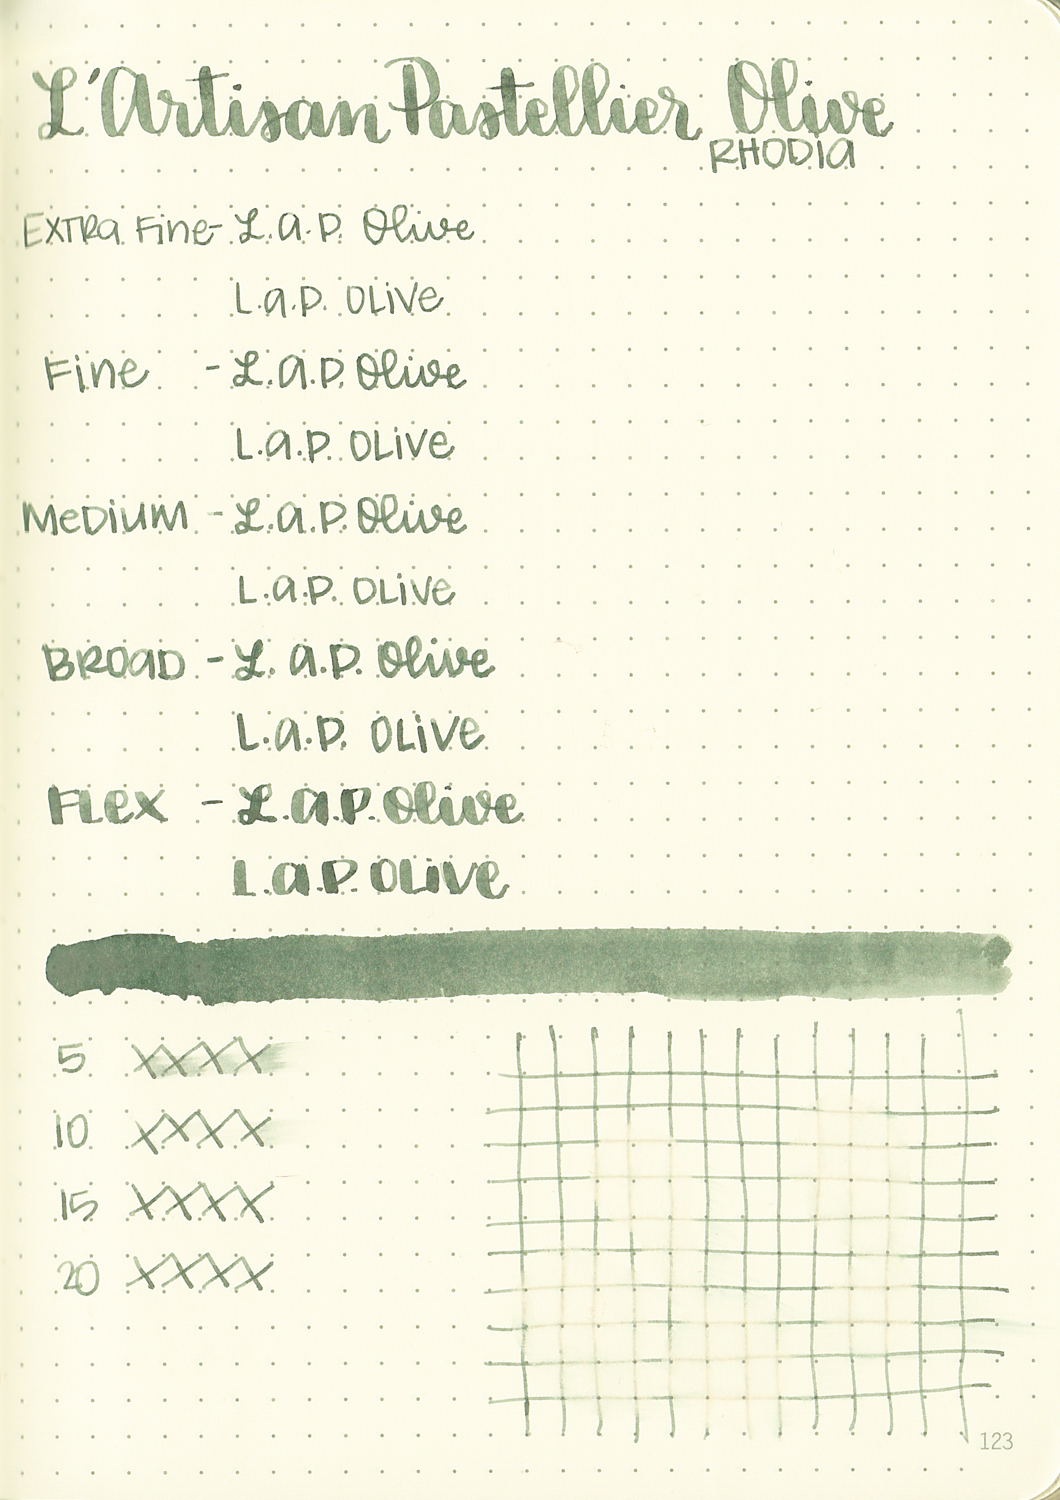 L'Artisan Pastellier Olive
RHODIA
EXTRA Fine - L.a.P. Olive
L.a.P. OLiVe
Fine - L.a.P. Olive
L.a.P. OLiVe
MeDiUM - L.a.P. Olive
L.a.P. OLiVe
BROaD - L.a.P. Olive
L.a.P. OLiVe
FLex - L.a.P. Olive
L.a.P. OLiVe
5 XXXX
10 XXXX
15 XXXX
20 XXXX
123